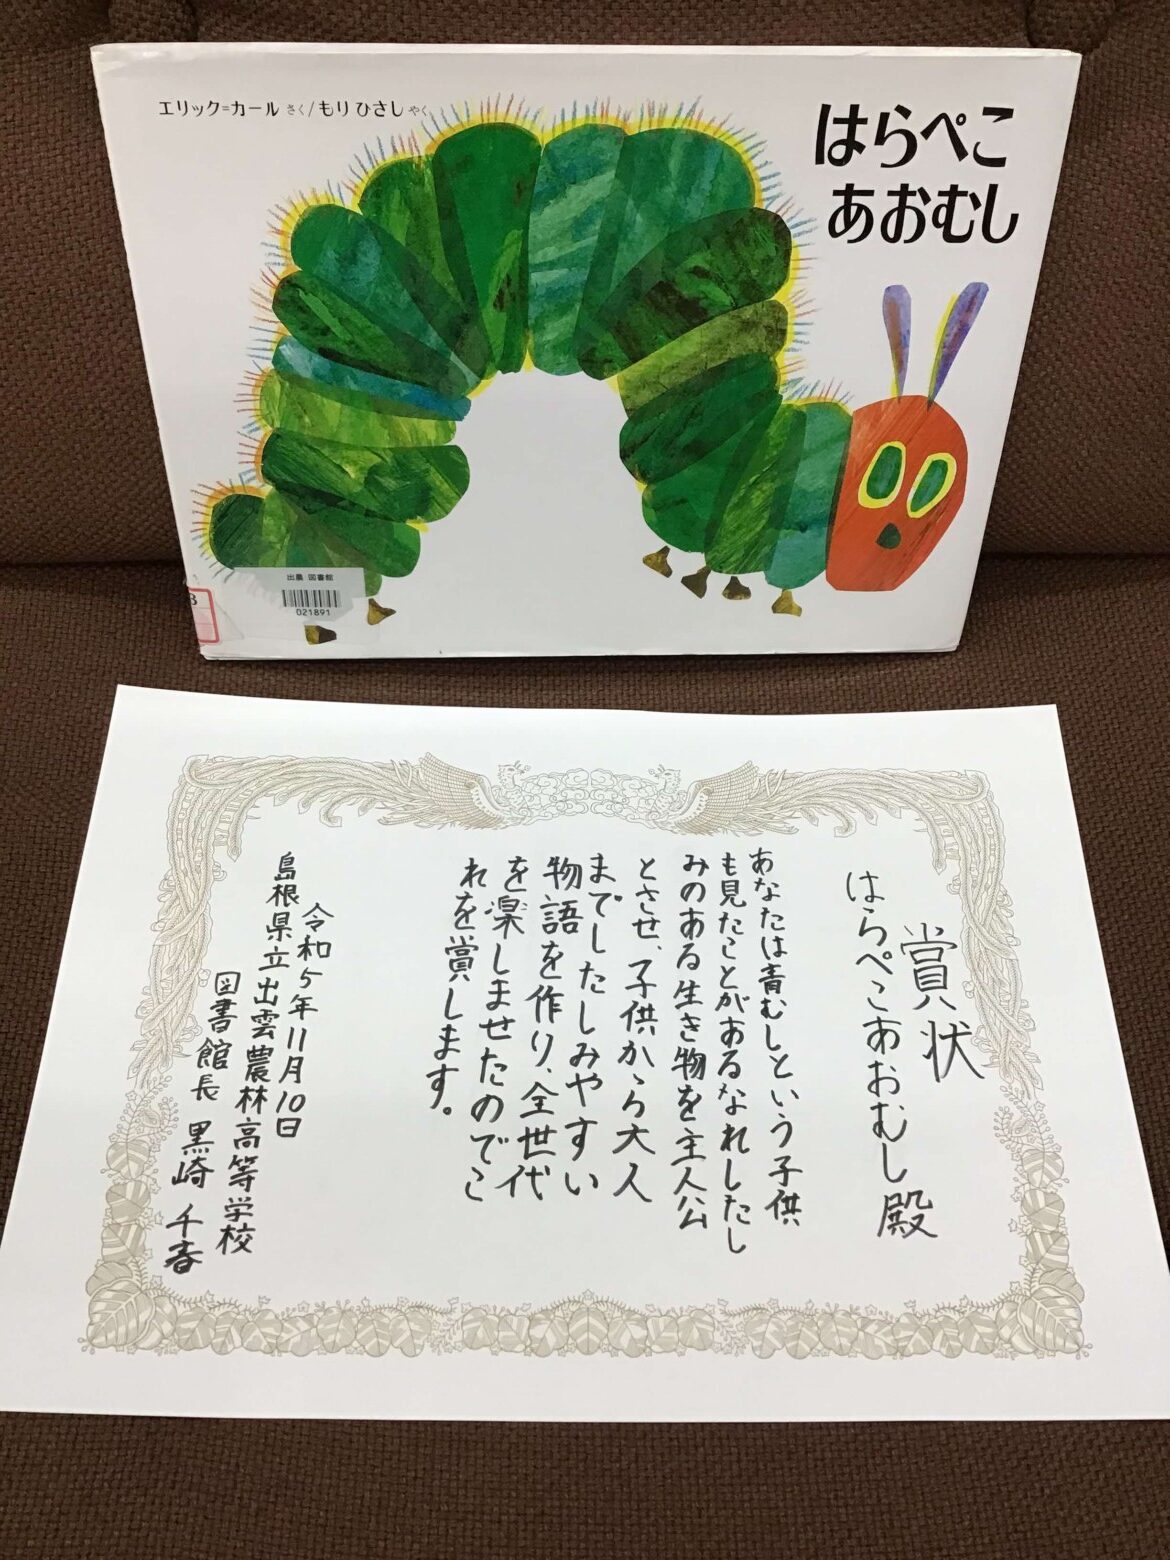 エリック=カール さく/もり ひさし やく
はらぺこ
あおむし
出農 図書館
021891
賞状
はらぺこあおむし殿
あなたは青むしという子供
も見たことがあるなれしたし
みのある生き物を主人公
とさせ、子供から大人
までしたしみやすい
物語を作り、全世代
を楽しませたのでこ
れを賞します。
令和5年11月10日
島根県立出雲農林高等学校
図書館長 黒崎 千春